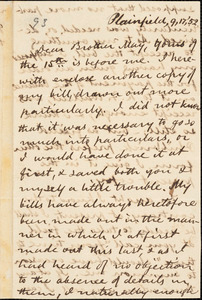 93
Plainfield, 9, 17/52
Dear Brother May, Yours of
the 15th is before me. I here-
with enclose another copy of
my bill drawn out more
particularly. I did not know
that it was necessary to go so
much into particulars, or
I would have done it at
first, & saved both you &
myself a little trouble. My
bills have always heretofore
been made out in the man-
ner in which I at first
made out this last & as I
had heard of no objection
to the absence of details in
them, I naturally enough